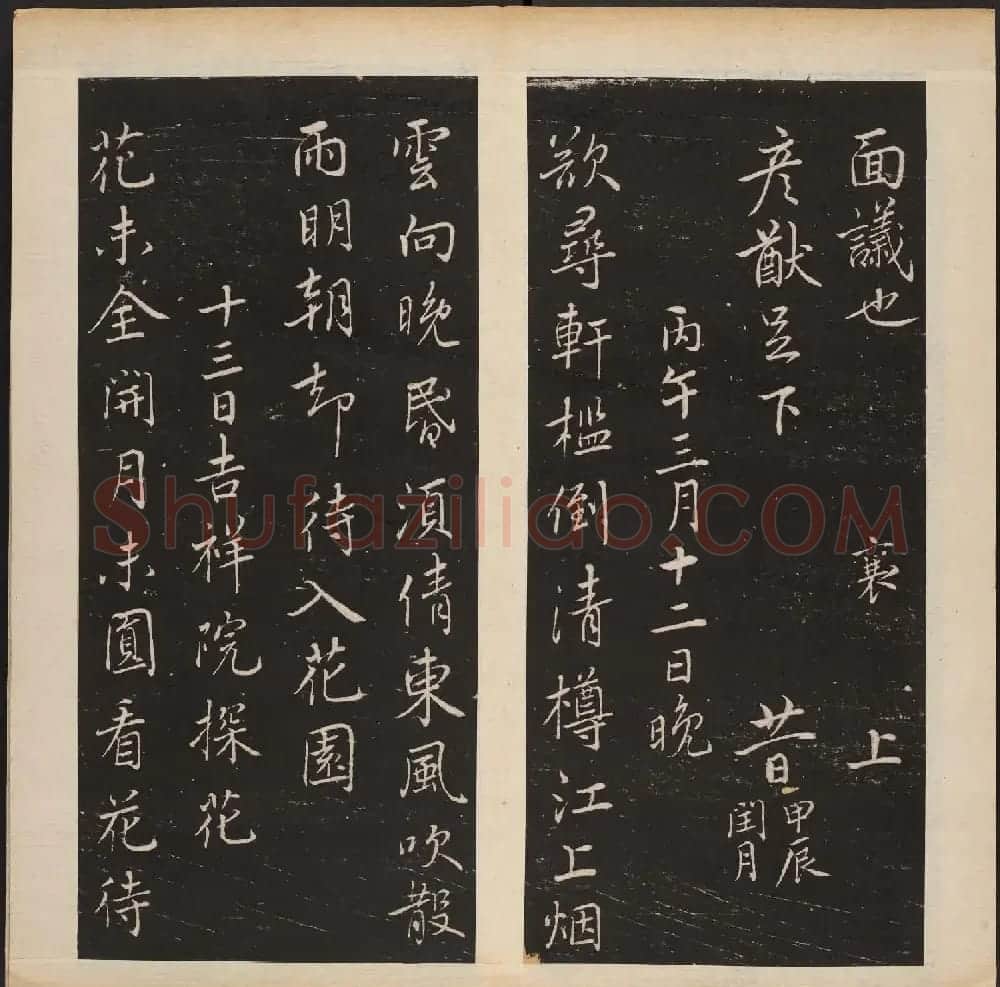 面議也 襄 上
彦猷足下 廿日甲辰閏月
丙午三月十二日晚
欲尋軒檻倒清樽江上烟
雲向晚昏須倩東風吹散
雨明朝却待入花園
十三日吉祥院探花
花未全開月未圓看花待
Shufaziliao.COM